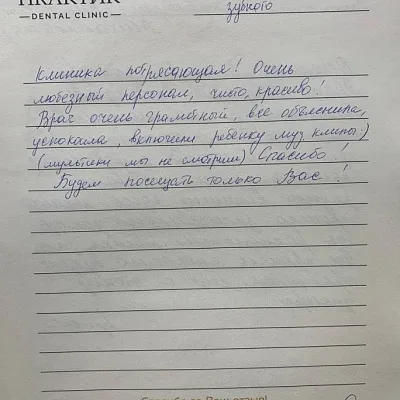 ПРАКТИК
— DENTAL CLINIC —
зубного
Клиника потрясающая! Очень
любезный персонал, чисто, красиво!
Врач очень грамотный, все объяснила,
успокоила, включили ребенку муз клипы:)
(мультики мы не смотрим) Спасибо!
Будем посещать только Вас!